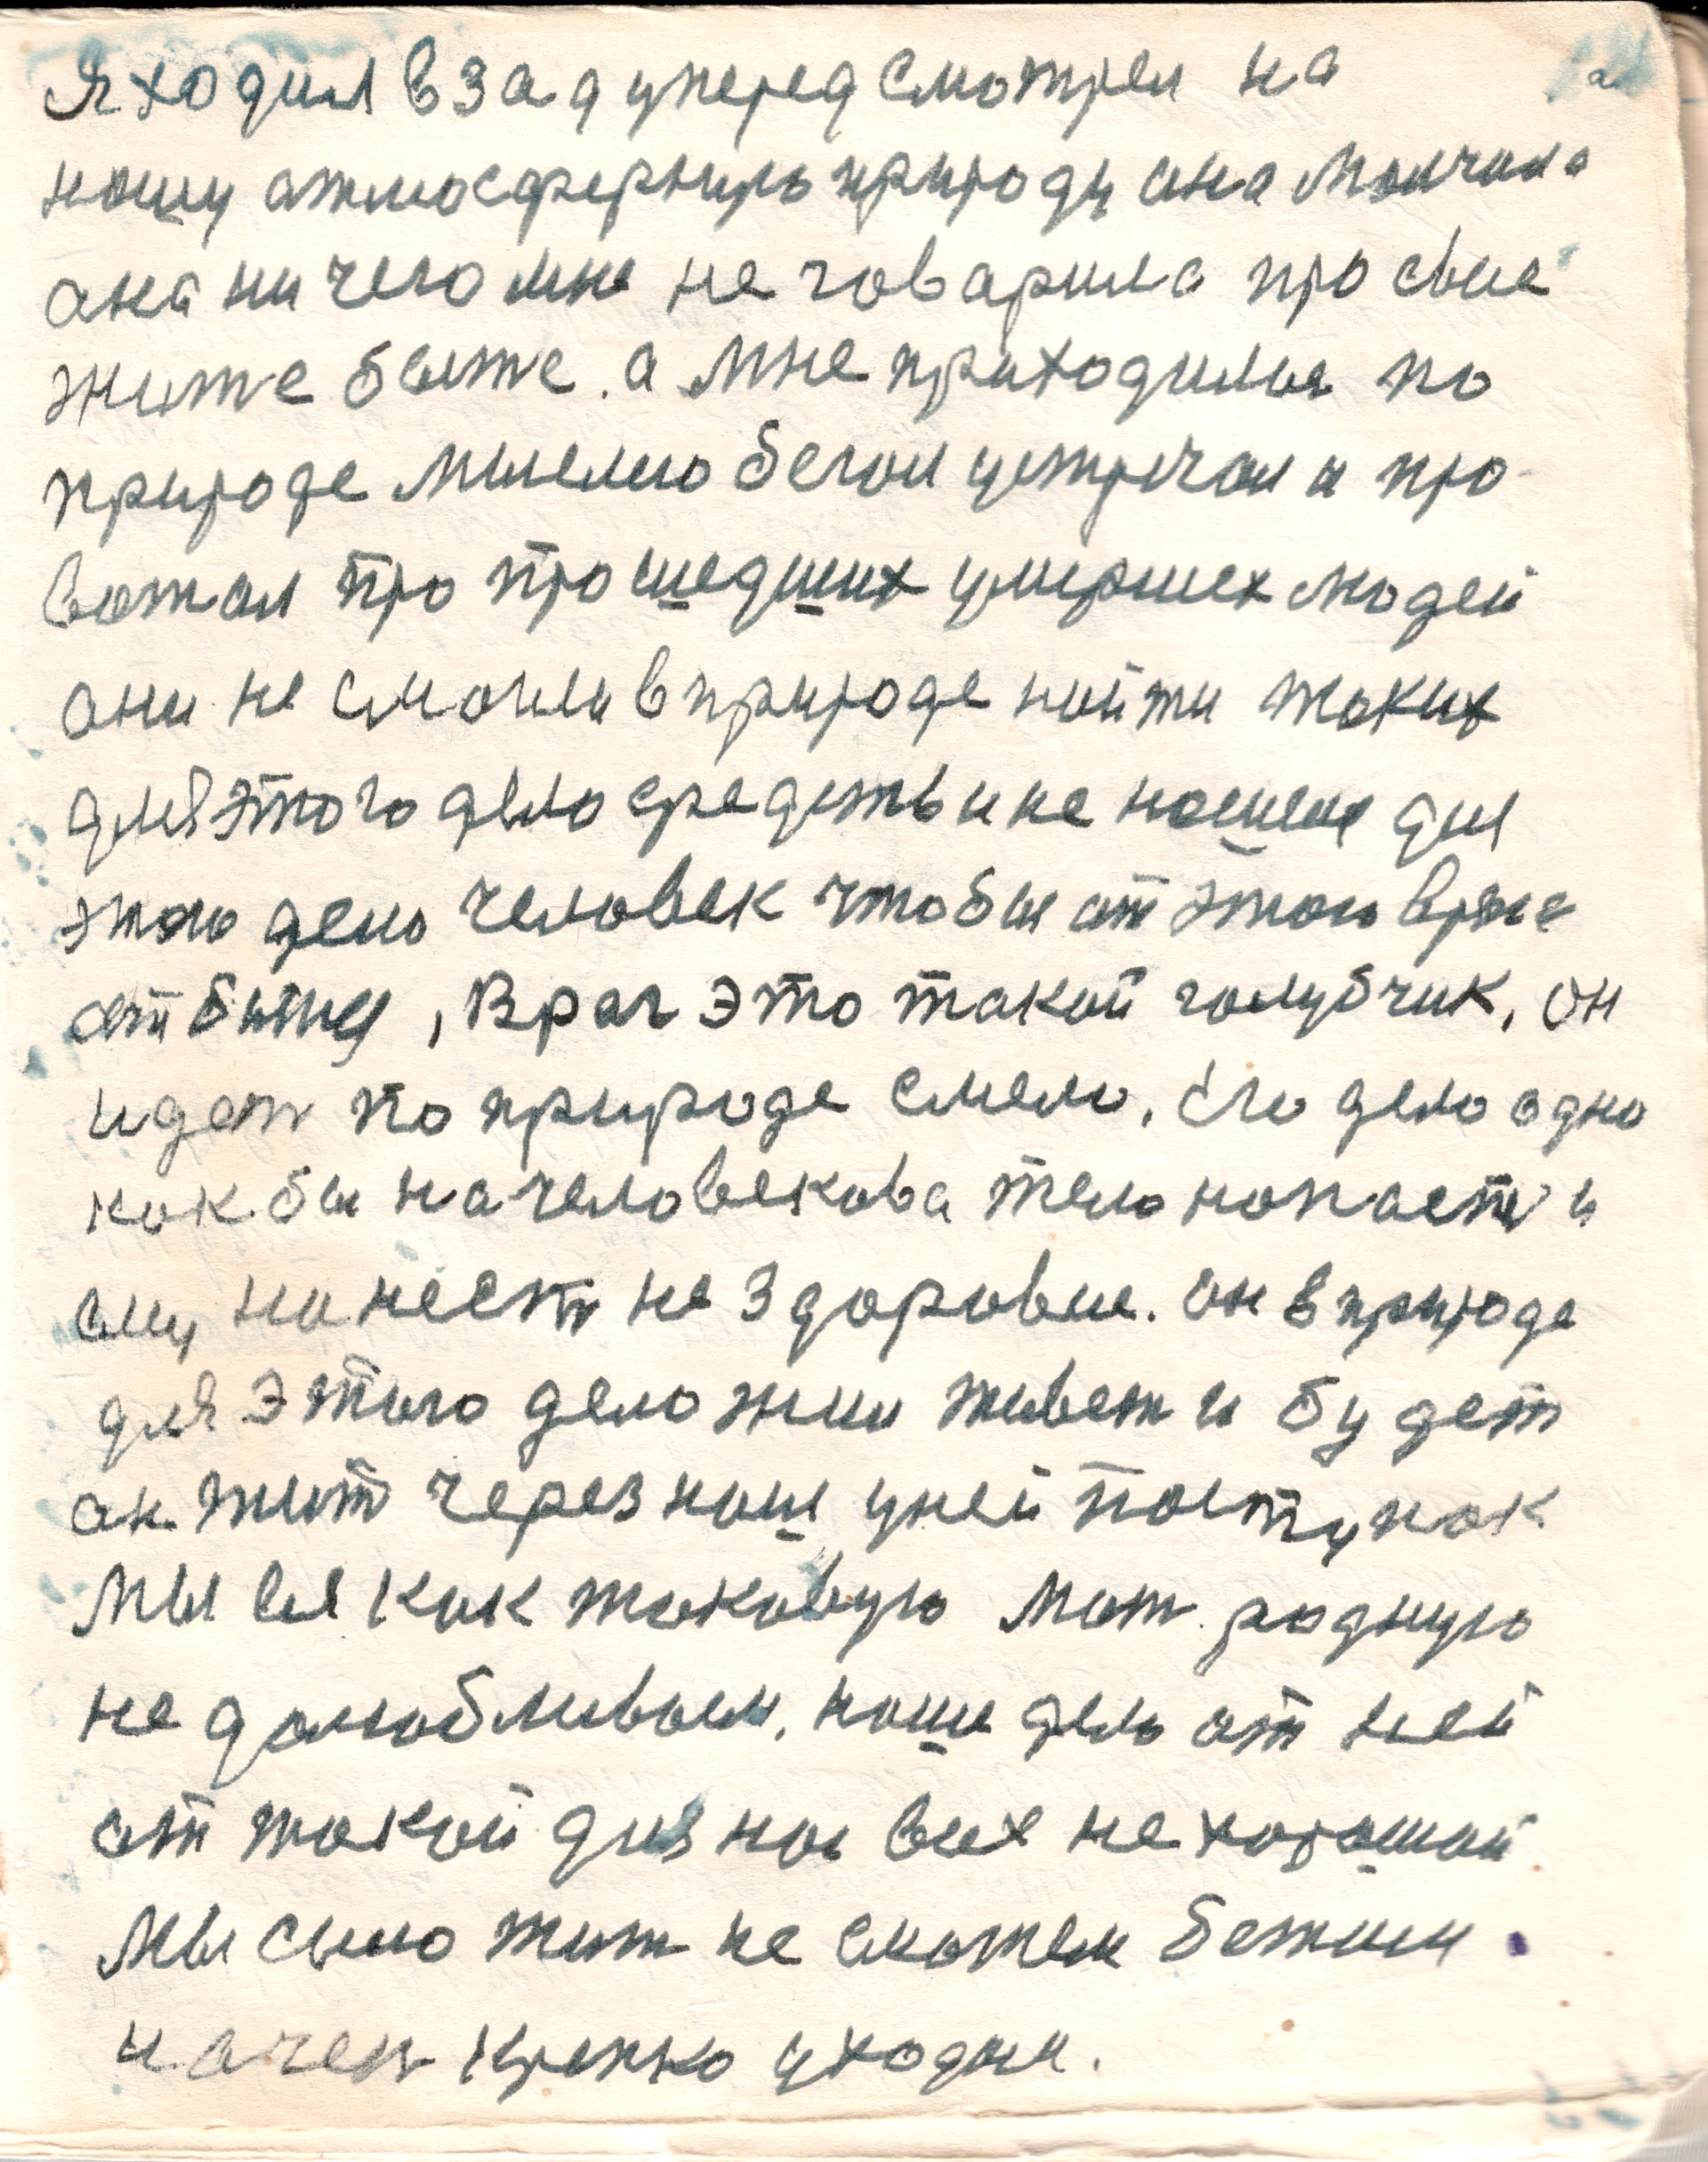 я ходил взад уперед смотрел на
нашу атмосферную природу она молчала
ана ничего мне не говарила про свое
жите быте. а мне приходилос по
природе мыслию бегал устречал и про
ватал про прошедших умерших людей
они не смогли в природе найти таких
для этого дело средств и не нашелся для
этого дело человек чтобы от этого
отбытця, Враг это такой голубчик, он
идет по природе смело. Его дело одно
как бы на человекова тело напасть и
ему нанести не здоровие. он в природе
для этого дело жил живет и будет
он жит через наш уней поступок
мы ея как таковую мат родную
не долюбливаем. наше дело от ней
от такой для нас всех не хорошой
мы смело жит не сможем бежим
и очен крепко уходим.